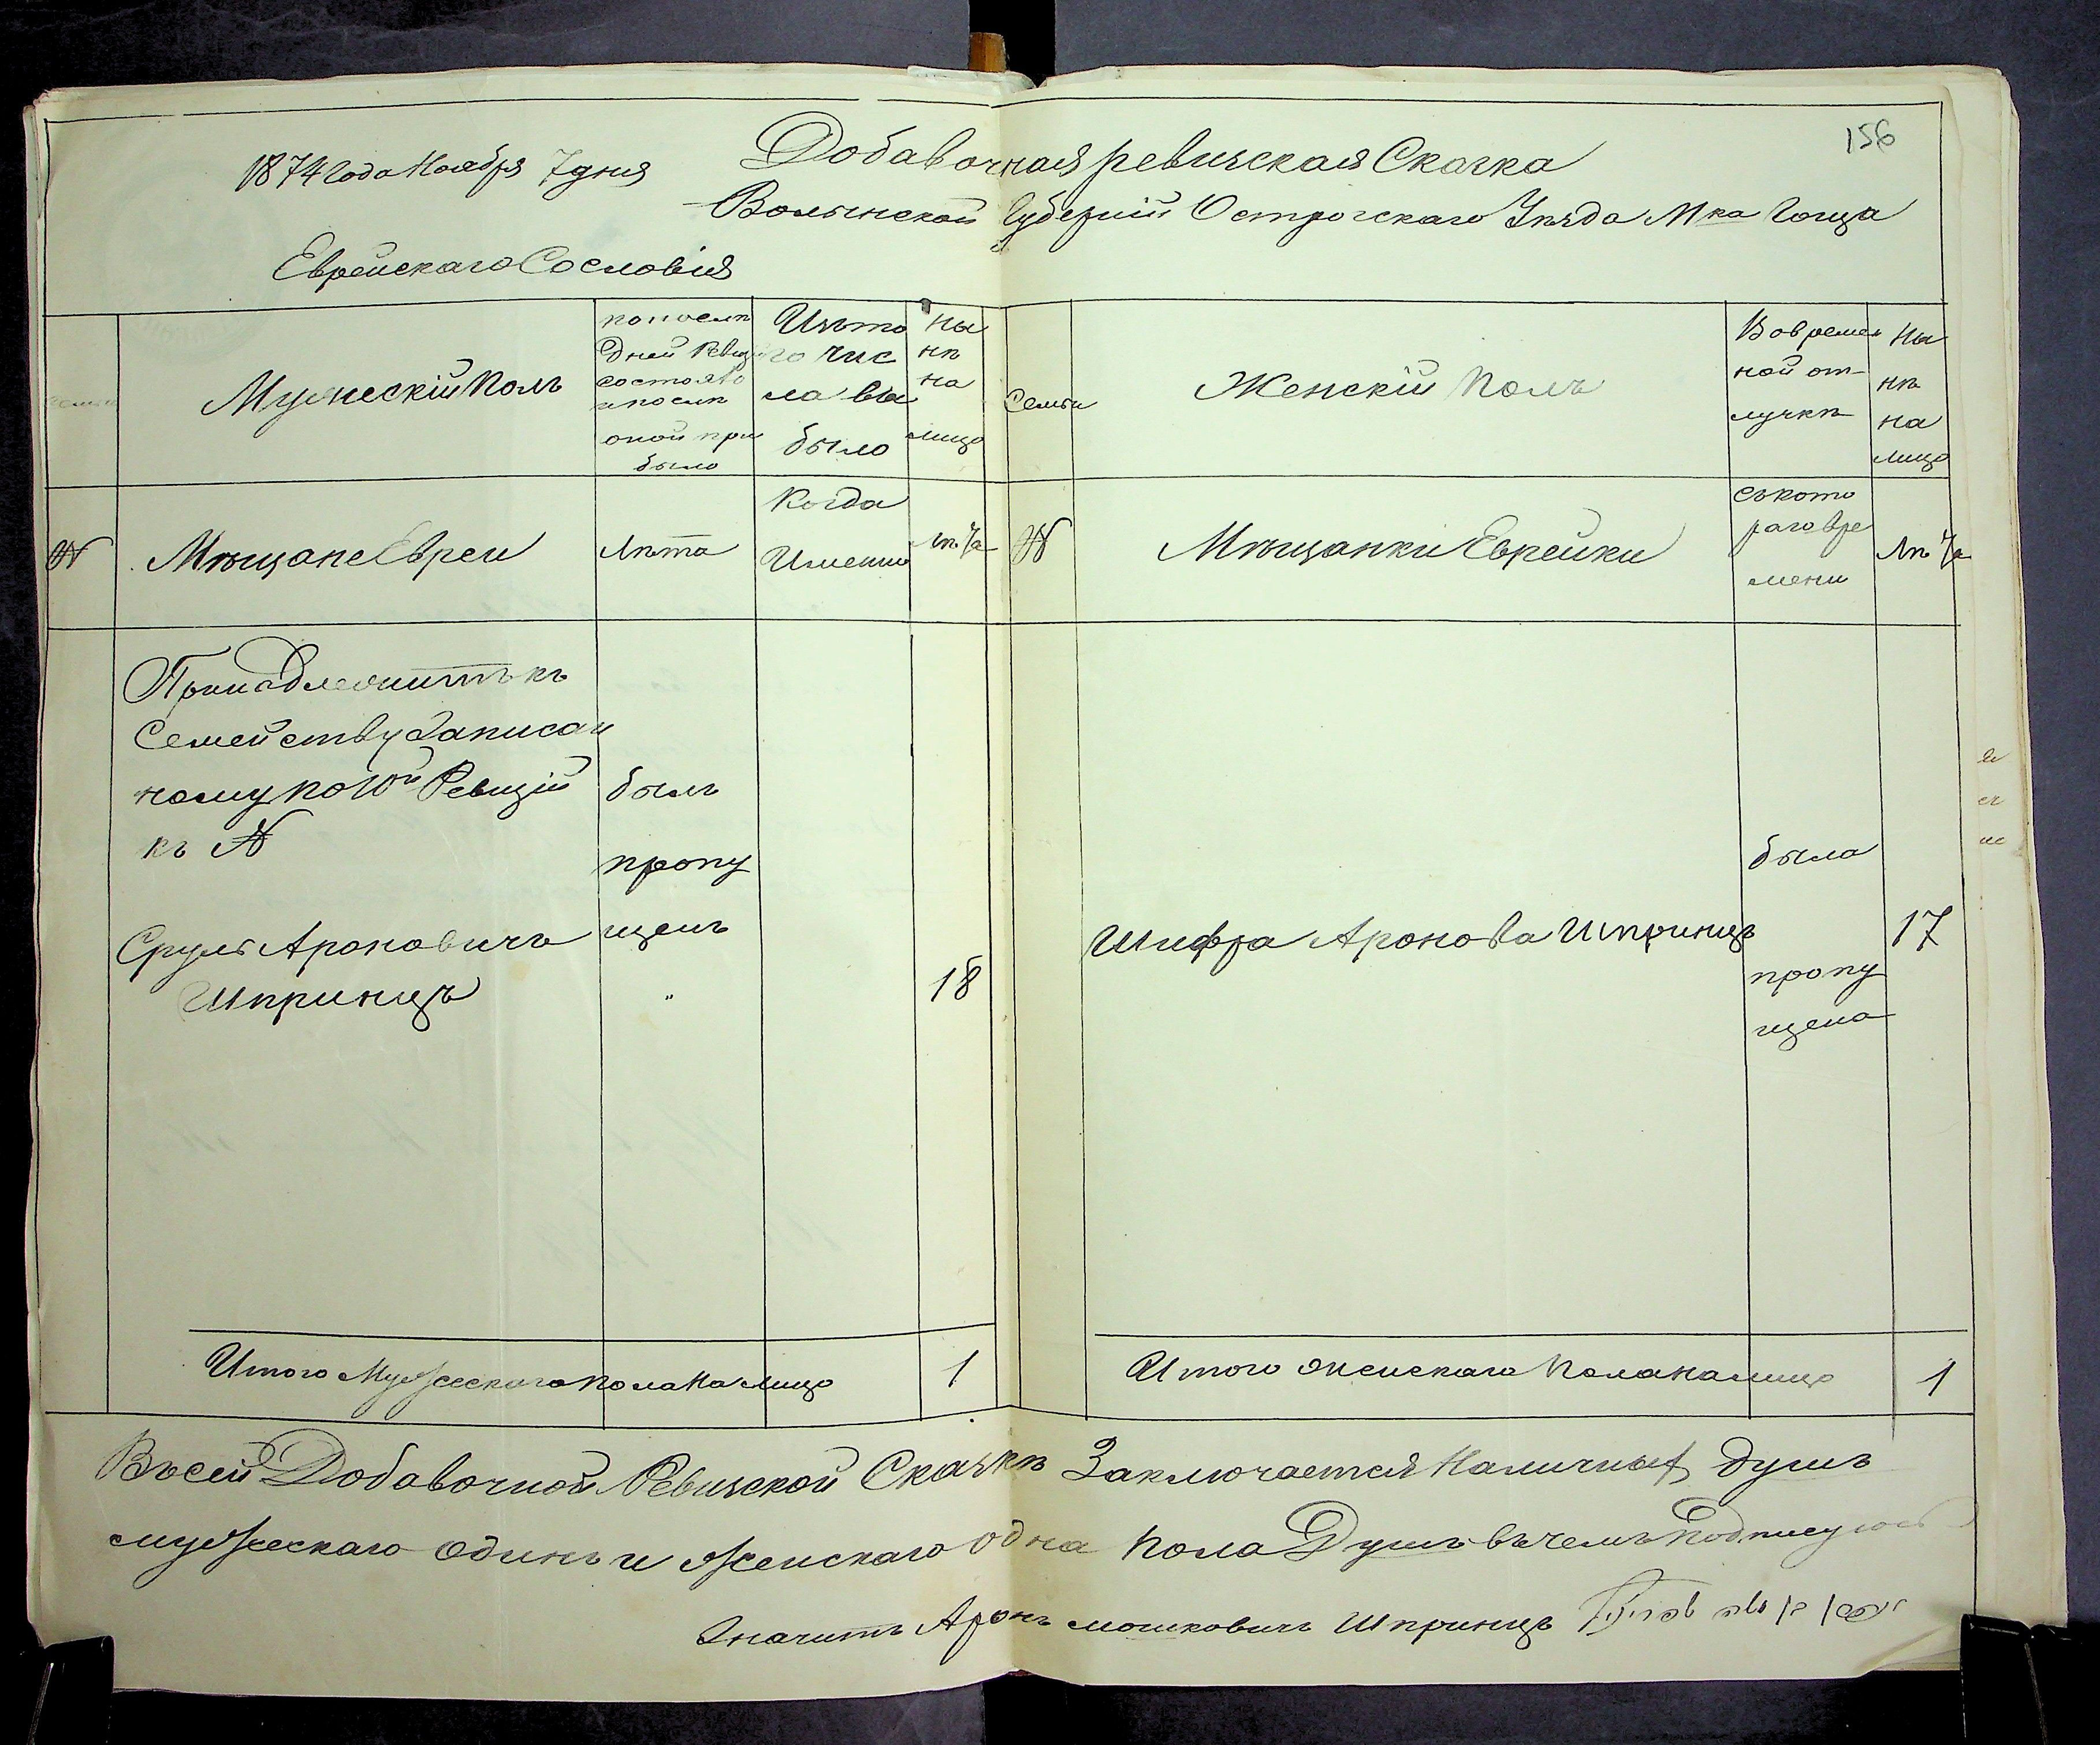 156
1874 Года Ноября 7 дня
Добавочная ревизская Сказка
Волынской Губернии Острогскаго Уезда М-ка Гоща
Еврейскаго Сословія
семьи
Мужескій Полъ
по послѣ
дней Ревиз
состояло
и послѣ
оной при
было
Изъ то
го чис
ла вы
было
Ны
нѣ
на
лицо
Семьи
Женскій Полъ
Во времен
ной от-
лучкѣ
Ны
нѣ
на
лицо
№
Мѣщане Евреи
Лѣта
Когда
Именно
Лѣта
№
Мѣщанки Еврейки
съ кото
раго вре
мени
Лѣта
Принадлежитъ къ
Семейству Записан
ному по 10й Ревизіи
къ №
былъ
пропу
щенъ
Сруль Ароновичъ
Шпринцъ
"
18
Шифра Аронова Шпринцъ
была
пропу
щена
17
Итого Мужескаго пола на лицо
1
Итого женскаго пола на лицо
1
Въ сей Добавочной Ревизской Сказкѣ Заключается Наличных душъ
мужескаго одинъ и женскаго одна пола Душъ въ чемъ Подписуюсь
Значитъ Аронъ Мошковичъ Шпринцъ